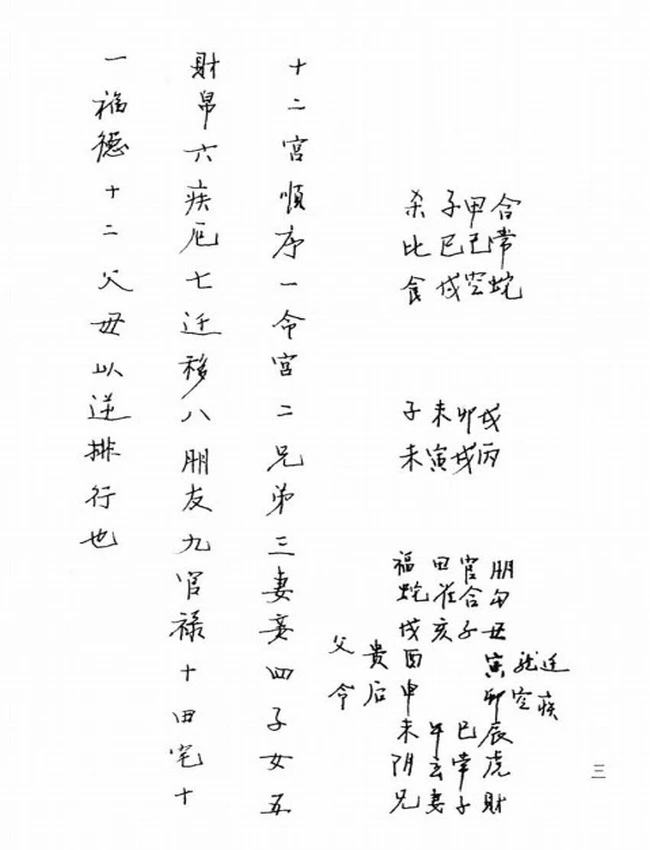 杀子甲合
比巳己常
食戌空蛇
子未卯戌
未寅戌丙
福田官朋
蛇雀合勾
戌亥子丑
父贵酉寅龙迁
令后申卯空疾
未午巳辰
阴玄常虎
兄妻子財
十二宮順序一令宮二兄弟三妻妾四子女五
財帛六疾厄七迁移八朋友九官禄十田宅十
一福德十二父母以逆排行也
三